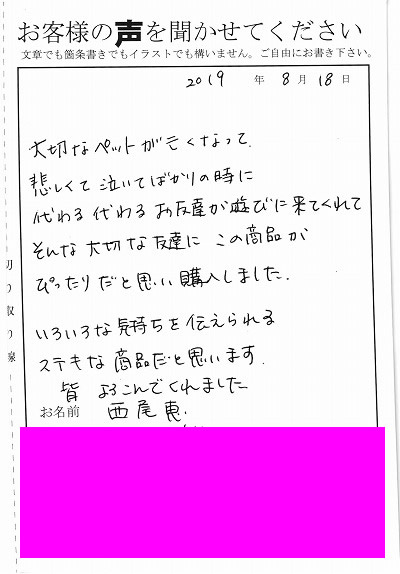 お客様の声を聞かせてください
文章でも箇条書きでもイラストでも構いません。ご自由にお書き下さい。
2019年8月18日
大切なペットが亡くなって、
悲しくて泣いてばかりの時に
代わる代わるお友達が遊びに来てくれて
そんな大切な友達にこの商品が
ぴったりだと思い購入しました.
いろいろな気持ちを伝えられる
ステキな商品だと思います.
皆よろこんでくれました
お名前 西尾恵.
切り取り線